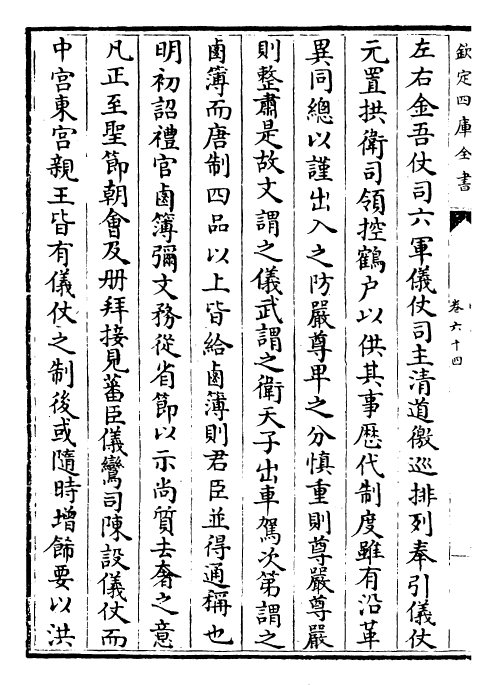 欽定四庫全書
卷六十四
左右金吾仗司六軍儀仗司主清道徼巡排列奉引儀仗
元置拱衛司領控鶴户以供其事歴代制度雖有沿革
異同總以謹出入之防嚴尊卑之分慎重則尊嚴尊嚴
則整肅是故文謂之儀武謂之衛天子出車駕次第謂之
鹵簿而唐制四品以上皆給鹵簿則君臣並得通稱也
明初詔禮官鹵簿彌文務從省節以示尚質去奢之意
凡正至聖節朝會及册拜接見蕃臣儀鸞司陳設儀仗而
中宮東宮親王皆有儀仗之制後或隨時增飾要以洪